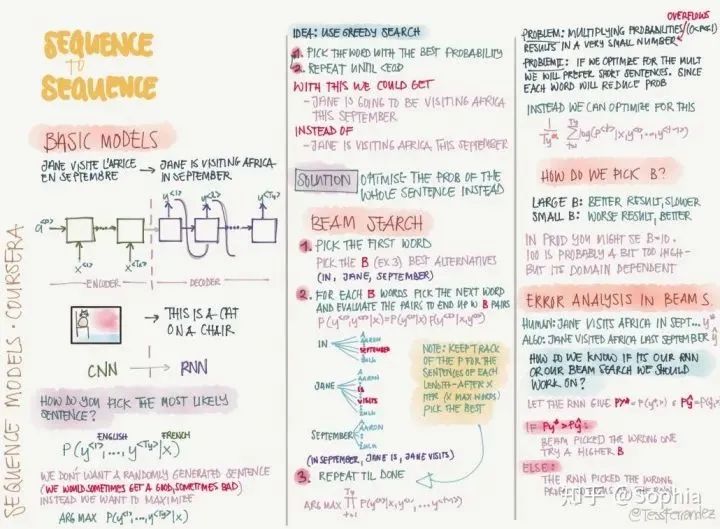 SEQUENCE
TO
SEQUENCE
BASIC MODELS
JANE VISITE L'AFRICE
EN SEPTEMBRE
→ JANE IS VISITING AFRICA
IN SEPTEMBER
y<1> y<2> y<Ty>
a<0>
x<1> x<Tx>
ENCODER DECODER
→ THIS IS A CAT
ON A CHAIR
CNN → RNN
HOW DO YOU PICK THE MOST LIKELY
SENTENCE?
ENGLISH FRENCH
P(y<1>, ..., y<Ty>|x)
WE DON'T WANT A RANDOMLY GENERATED SENTENCE
(WE WOULD SOMETIMES GET A GOOD, SOMETIMES BAD)
INSTEAD WE WANT TO MAXIMIZE
ARG MAX P(y<1>, ..., y<Ty>|x)
SEQUENCE MODELS · COURSERA
IDEA: USE GREEDY SEARCH
1. PICK THE WORD WITH THE BEST PROBABILITY
2. REPEAT UNTIL <EOS>
WITH THIS WE COULD GET
- JANE IS GOING TO BE VISITING AFRICA
THIS SEPTEMBER
INSTEAD OF
- JANE IS VISITING AFRICA THIS SEPTEMBER
SOLUTION OPTIMISE THE PROB OF THE
WHOLE SENTENCE INSTEAD
BEAM SEARCH
1. PICK THE FIRST WORD
PICK THE B (EX. 3) BEST ALTERNATIVES
(IN, JANE, SEPTEMBER)
2. FOR EACH B WORDS PICK THE NEXT WORD
AND EVALUATE THE PAIRS TO END UP W B PAIRS
P(y<1>, y<2>|x) = P(y<1>|x) P(y<2>|x, y<1>)
IN
A
AARON
SEPTEMBER
ZULU
JANE
A
AARON
IS
VISITS
ZULU
SEPTEMBER
A
AARON
ZULU
(IN SEPTEMBER, JANE IS, JANE VISITS)
NOTE: KEEP TRACK
OF THE P FOR THE
SENTENCES OF EACH
LENGTH - AFTER X
ITER (X MAX WORDS)
PICK THE BEST
3. REPEAT TIL DONE
ARG MAX Ty ∏ t=1 P(y<t>|x, y<1>, ..., y<t-1>)
OVERFLOWS
PROBLEM: MULTIPLYING PROBABILITIES (0<P<<1)
RESULTS IN A VERY SMALL NUMBER
PROBLEM II: IF WE OPTIMIZE FOR THE MULT
WE WILL PREFER SHORT SENTENCES. SINCE
EACH WORD WILL REDUCE PROB
INSTEAD WE CAN OPTIMIZE FOR THIS
1/Ty^α Ty ∑ t=1 log(P<t>|x, y<1>, ..., y<t-1>)
HOW DO WE PICK B?
LARGE B: BETTER RESULT, SLOWER
SMALL B: WORSE RESULT, BETTER
IN PROD YOU MIGHT SEE B=10.
100 IS PROBABLY A BIT TOO HIGH -
BUT ITS DOMAIN DEPENDENT
ERROR ANALYSIS IN BEAM S.
HUMAN: JANE VISITS AFRICA IN SEPT... y*
ALGO: JANE VISITED AFRICA LAST SEPTEMBER ŷ
HOW DO WE KNOW IF ITS OUR RNN
OR OUR BEAM SEARCH WE SHOULD
WORK ON?
LET THE RNN GIVE Py* = P(y*|x) & Pŷ = P(ŷ|x)
IF Py* > Pŷ:
BEAM PICKED THE WRONG ONE
TRY A HIGHER B
ELSE:
THE RNN PICKED THE WRONG
知乎 @Sophia
@TessFerrandez